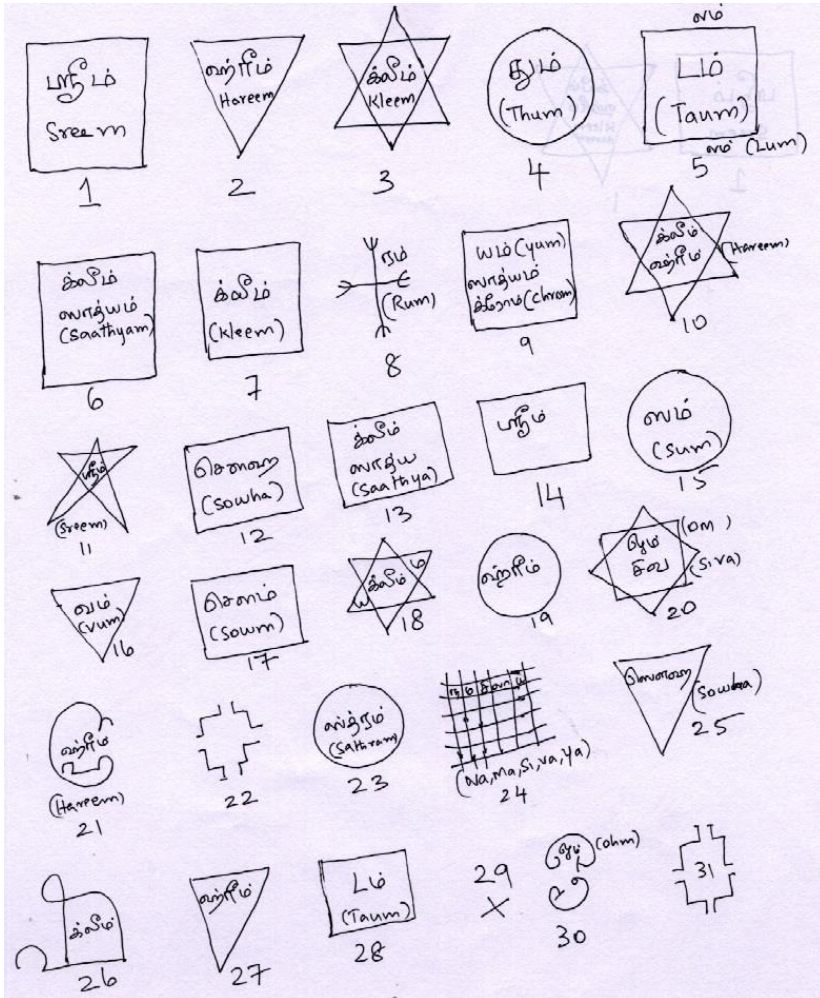 ஸ்ரீம்
Sreem
1
ஹ்ரீம்
Hareem
2
க்லீம்
Kleem
3
தும்
(Thum)
4
லம்
டம்
(Taum)
லம் (Lum)
5
க்லீம்
ஸாத்யம்
(Saathyam)
6
க்லீம்
(Kleem)
7
ரம்
(Rum)
8
யம் (yum)
ஸாத்யம்
க்ரோம் (chrom)
9
க்லீம்
ஹ்ரீம்
(Hareem)
10
ஸ்ரீம்
(Sreem)
11
செளஹ
(Sowha)
12
க்லீம்
ஸாத்ய
(Saathya)
13
ஸ்ரீம்
14
ஸம்
(Sum)
15
வம்
(Vum)
16
செளம்
(Sowm)
17
க்லீம்
18
ஹ்ரீம்
19
ஓம் (om)
சிவ (Siva)
20
ஹ்ரீம்
(Hareem)
21
22
(Sathram)
23
ந ம சி வா ய
(Na, Ma, Si, Va, Ya)
24
(Sowha)
25
க்லீம்
26
ஹ்ரீம்
27
டம்
(Taum)
28
29
X
ஓம் (ohm)
30
31